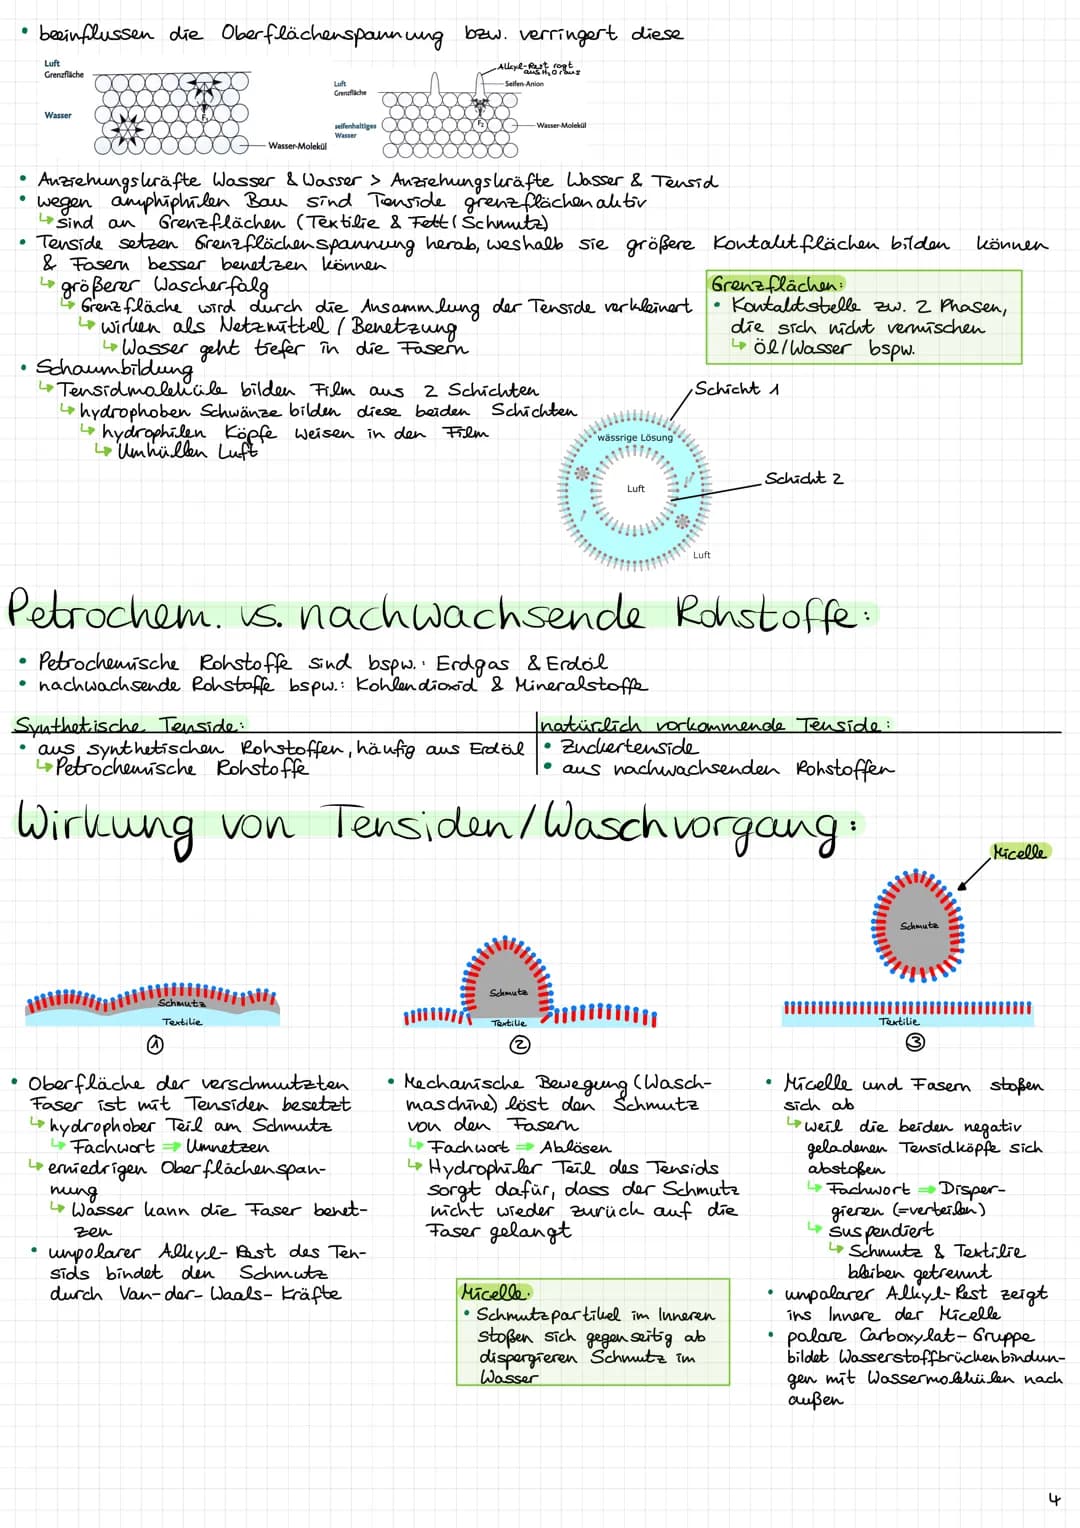 • beeinflussen die Oberflächenspannung bzw. verringert diese
Luft
Grenzfläche
Wasser
F₁
Wasser-Molekül
Luft
Grenzfläche
seifenhaltiges
Wasser
Alkyl-Rest ragt
aus H₂O raus
Seifen-Anion
F₂
Wasser-Molekül
• Anziehungskräfte Wasser & Wasser > Anziehungskräfte Wasser & Tensid
• wegen amphiphilen Bau sind Tenside grenzflächenaktiv
↳ sind an Grenzflächen (Textilie & Fett (Schmutz)
• Tenside setzen Grenzflächenspannung herab, weshalb sie größere Kontaktflächen bilden können
& Fasern besser benetzen können
↳ größerer Wascherfolg
↳ Grenzfläche wird durch die Ansammlung der Tenside verkleinert
↳ wirken als Netzmittel / Benetzung
↳ Wasser geht tiefer in die Fasern
Grenzflächen:
• Kontaktstelle zw. 2 Phasen,
die sich nicht vermischen
↳ Öl/Wasser bspw.
• Schaumbildung
↳ Tensidmoleküle bilden Film aus 2 Schichten
↳ hydrophoben Schwänze bilden diese beiden Schichten
↳ hydrophilen Köpfe weisen in den Film
↳ Umhüllen Luft
Schicht 1
wässrige Lösung
Luft
Schicht 2
Luft
Petrochem. vs. nachwachsende Rohstoffe:
• Petrochemische Rohstoffe sind bspw.: Erdgas & Erdöl
• nachwachsende Rohstoffe bspw.: Kohlendioxid & Mineralstoffe
Synthetische Tenside:
• aus synthetischen Rohstoffen, häufig aus Erdöl
↳ Petrochemische Rohstoffe
natürlich vorkommende Tenside:
• Zuckertenside
• aus nachwachsenden Rohstoffen
Wirkung von Tensiden/Waschvorgang:
Micelle
Schmutz
Textilie
①
Schmutz
Textilie
②
Schmutz
Textilie
③
• Oberfläche der verschmutzten
Faser ist mit Tensiden besetzt
↳ hydrophober Teil am Schmutz
↳ Fachwort ⇒ Umnetzen
↳ erniedrigen Oberflächenspan-
nung
↳ Wasser kann die Faser benet-
zen
• unpolarer Alkyl-Rest des Ten-
sids bindet den Schmutz
durch Van-der-Waals-Kräfte
• Mechanische Bewegung (Wasch-
maschine) löst den Schmutz
von den Fasern
↳ Fachwort ⇒ Ablösen
↳ Hydrophiler Teil des Tensids
sorgt dafür, dass der Schmutz
nicht wieder zurück auf die
Faser gelangt
Micelle:
• Schmutzpartikel im Inneren
stoßen sich gegenseitig ab
dispergieren Schmutz im
Wasser
• Micelle und Fasern stoßen
sich ab
↳ weil die beiden negativ
geladenen Tensidköpfe sich
abstoßen
↳ Fachwort ⇒ Disper-
gieren (=verteilen)
↳ suspendiert
↳ Schmutz & Textilie
bleiben getrennt
• unpolarer Alkyl-Rest zeigt
ins Innere der Micelle
• polare Carboxylat-Gruppe
bildet Wasserstoffbrückenbindun-
gen mit Wassermolekülen nach
außen
4